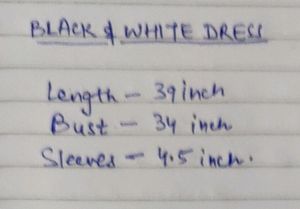 BLACK & WHITE DRESS
Length - 39 inch
Bust - 34 inch
Sleeves - 4.5 inch.